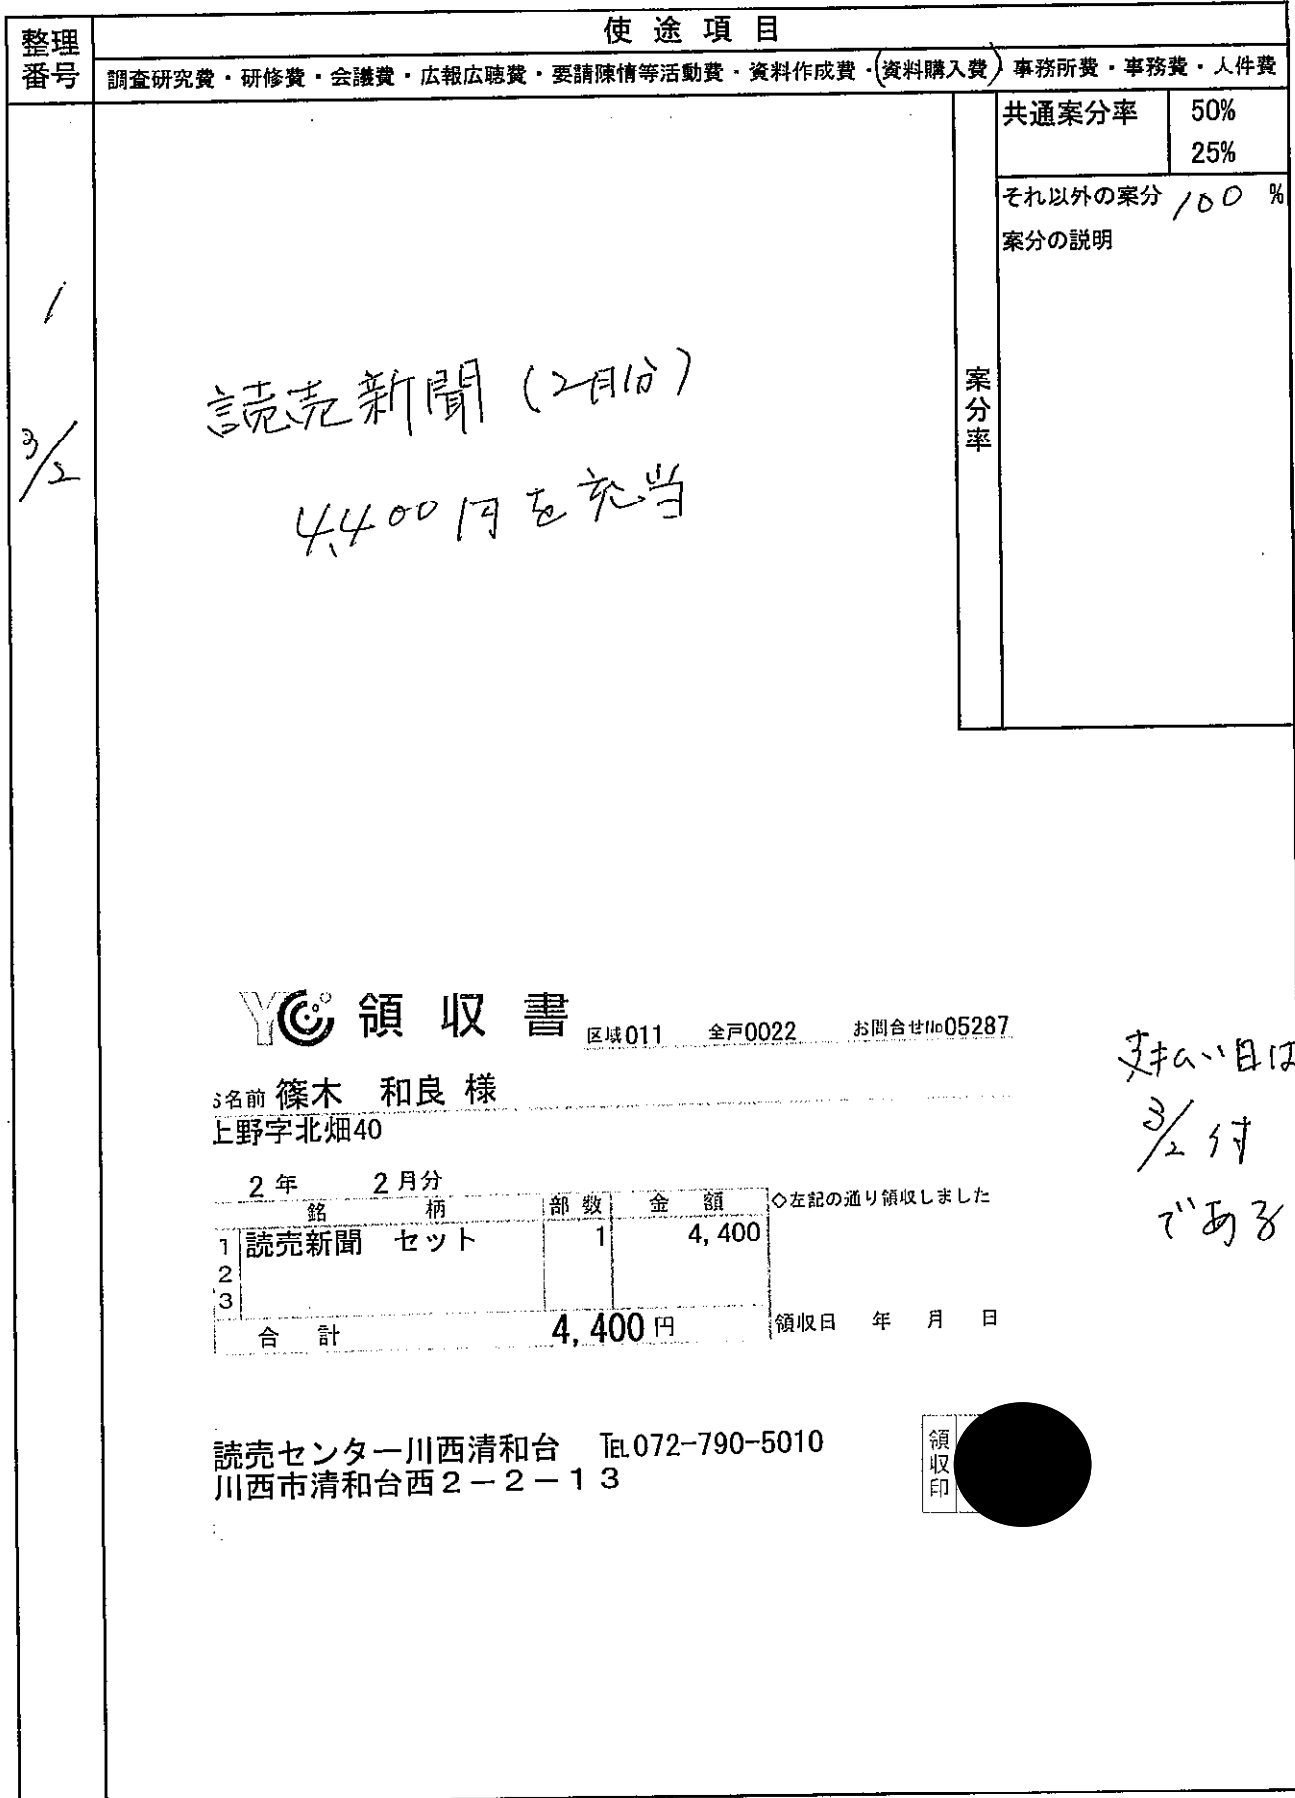 整理番号
使途項目
調査研究費・研修費・会議費・広報広聴費・要請陳情等活動費・資料作成費・(資料購入費) 事務所費・事務費・人件費
共通案分率 50%
25%
それ以外の案分 100 %
案分の説明
案分率
1
3/2
読売新聞(2月分)
4,400円を充当
YC 領収書 区域011 全戸0022 お問合せNo05287
名前 篠木 和良 様
上野字北畑40
2年 2月分
銘柄 部数 金額 ◇左記の通り領収しました
1 読売新聞 セット 1 4,400
2
3
合計 4,400円 領収日 年 月 日
支払い日は
3/2付
である
読売センター川西清和台 TEL072-790-5010
川西市清和台西2-2-13
領収印